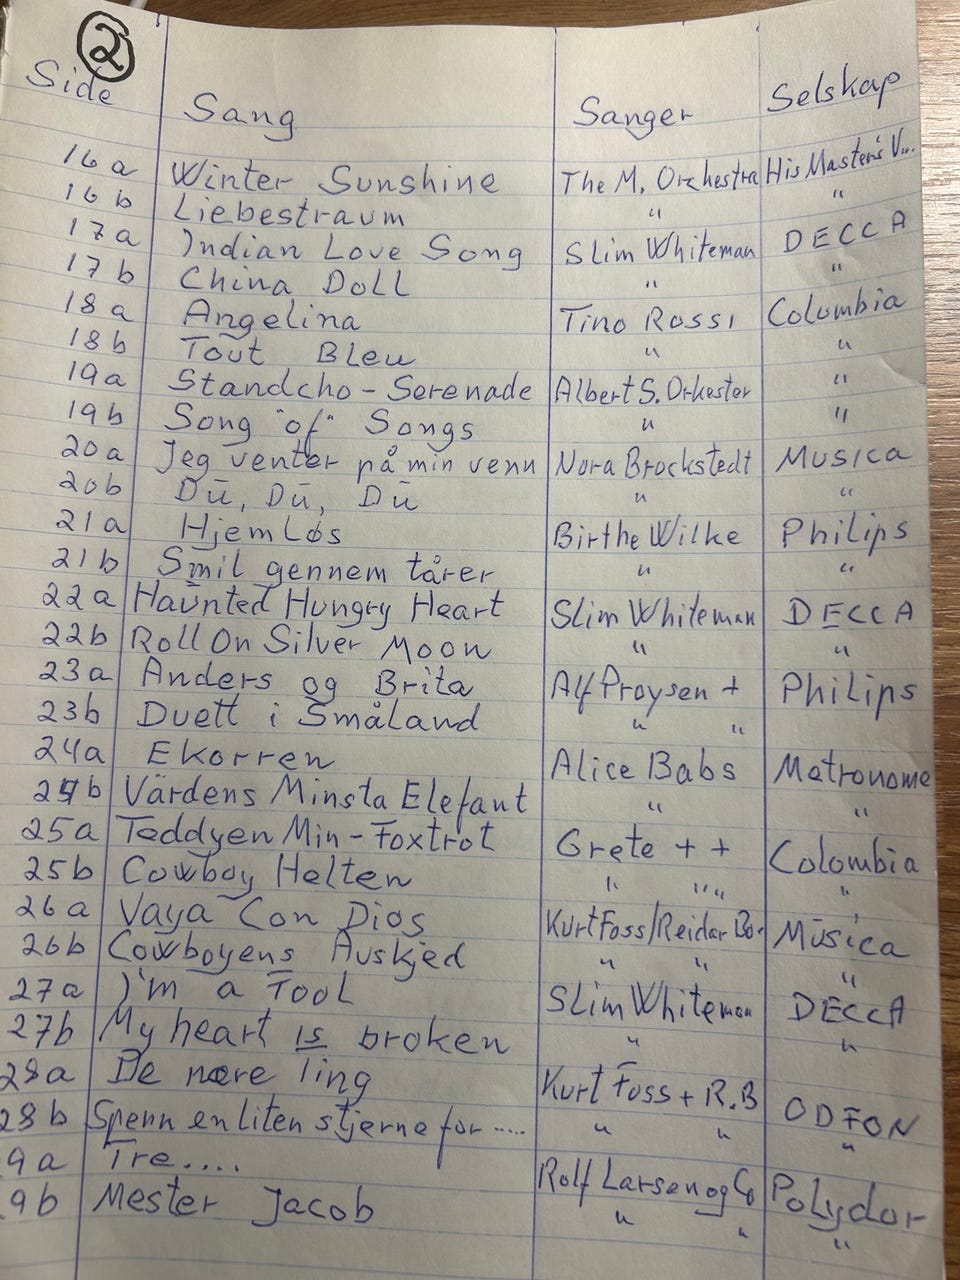 2
Side Sang Sanger Selskap
16a Winter Sunshine The M. Orchestra His Master's V...
16b Liebestraum " "
17a Indian Love Song Slim Whiteman DECCA
17b China Doll " "
18a Angelina Tino Rossi Columbia
18b Tout Bleu " "
19a Standcho - Serenade Albert S. Orkester "
19b Song "of" Songs " "
20a Jeg venter på min venn Nora Brockstedt Musica
20b Du, Du, Du " "
21a Hjemløs Birthe Wilke Philips
21b Smil gennem tårer " "
22a Haunted Hungry Heart Slim Whiteman DECCA
22b Roll On Silver Moon " "
23a Anders og Brita Alf Prøysen + Philips
23b Duett i Småland " "
24a Ekorren Alice Babs Metronome
24b Värdens Minsta Elefant " "
25a Teddyen Min - Foxtrot Grete + + Colombia
25b Cowboy Helten " " " "
26a Vaya Con Dios Kurt Foss/Reidar Bo. Musica
26b Cowboyens Avskjed " " "
27a I'm a Fool Slim Whiteman DECCA
27b My heart is broken " "
28a De nære ting Kurt Foss + R.B ODEON
28b Spenn en liten stjerne for ..... " " "
9a Tre..... Rolf Larsen og Co Polydor
9b Mester Jacob " " "